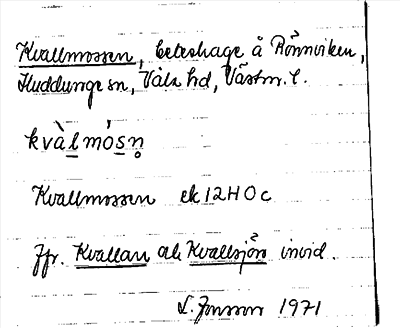 Kvallmossen, beteshage å Rönnviken,
Huddunge sn, Våla hd, Västm. l.
kvàlmósn̥
Kvallmossen ek 12H0c
Jfr. Kvallan och Kvallsjön invid.
L. Jonsson 1971